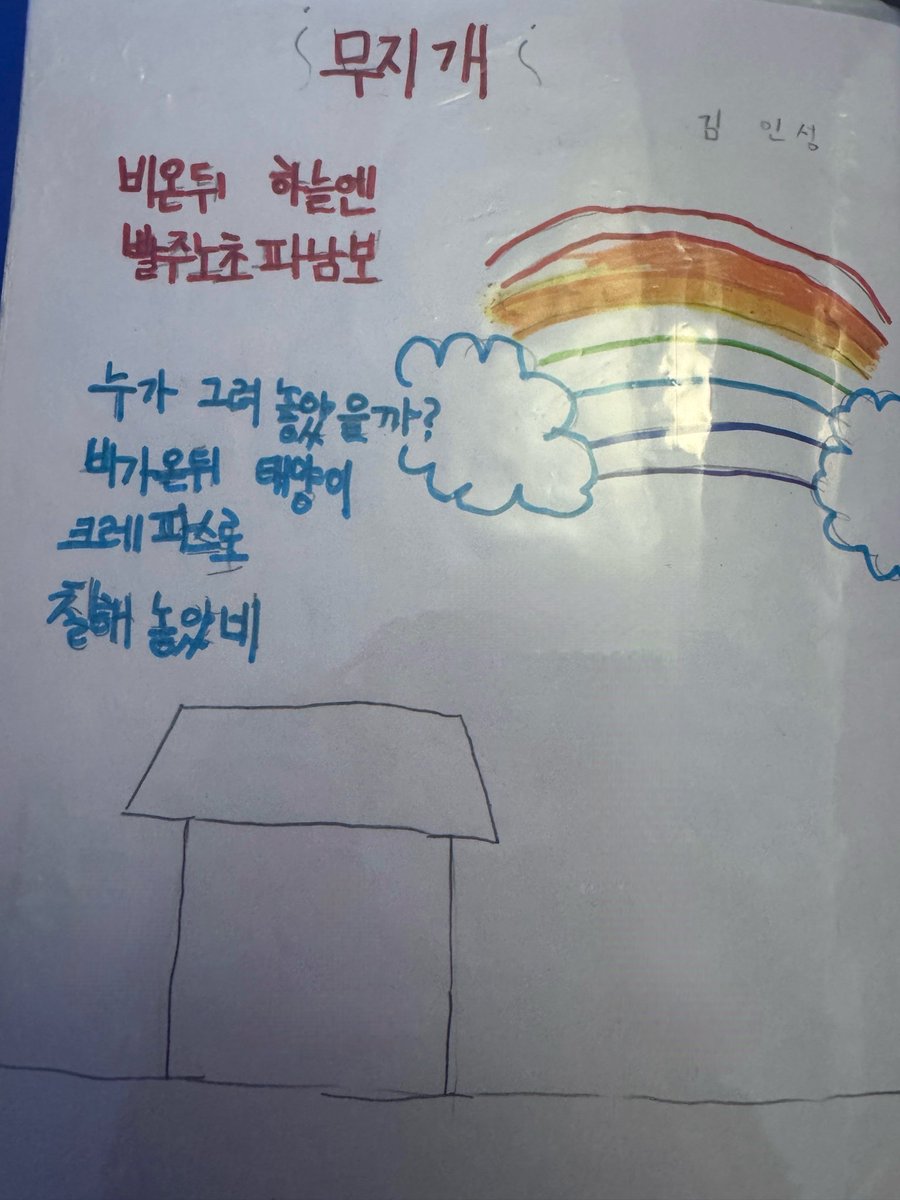 무지개
김 인성
비온뒤 하늘엔
빨주노초파남보
누가 그려 놓았을까?
비가온뒤 태양이
크레파스로
칠해 놓았네